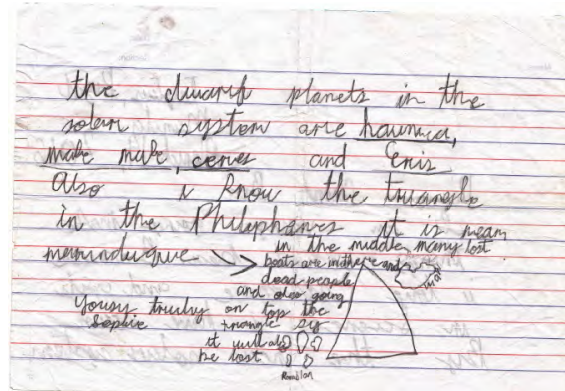 the dwarf planets in the
solar system are haumea,
make make, ceres and Eris
Also i know the triangle
in the Philiphanes it is near
marinduque
in the middle many lost
boats are in there and
dead people
and also going
on top the
triangle
it will also
be lost
Yousy truhly
Sophie
Romblon